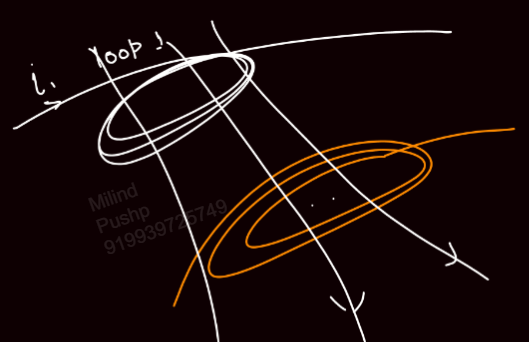 loop 1
i₁
Milind
Pushp
919939725749